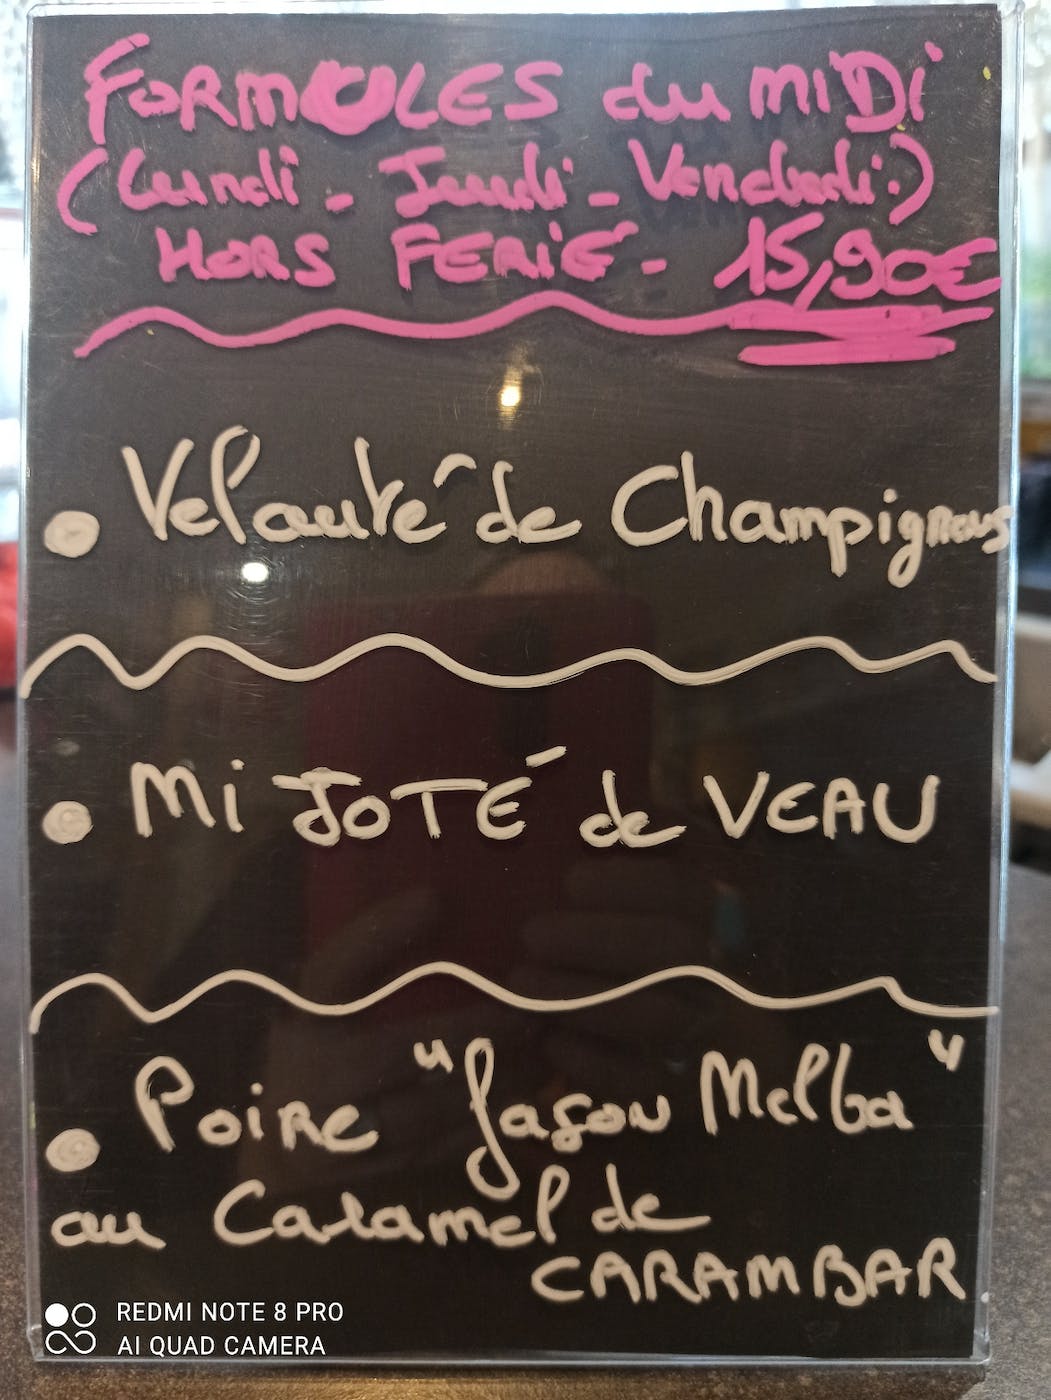 FORMULES du MIDI
(Lundi - Jeudi - Vendredi.)
HORS FERIÉ - 15,90€
• Velouté de Champignons
• Mi JOTÉ de VEAU
• Poire "Façon Melba"
au Caramel de
CARAMBAR
REDMI NOTE 8 PRO
AI QUAD CAMERA